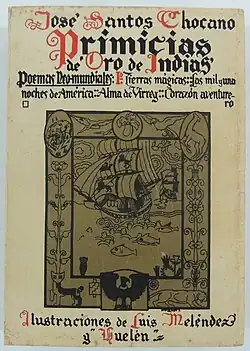 José Santos Chocano
Primicias
de Oro de Indias
Poemas Neo-mundiales: Tierras mágicas: Las mil y una
noches de América: Alma de Virrey: Corazón aventure-
ro
Ilustraciones de Luis Meléndez
y Huelén